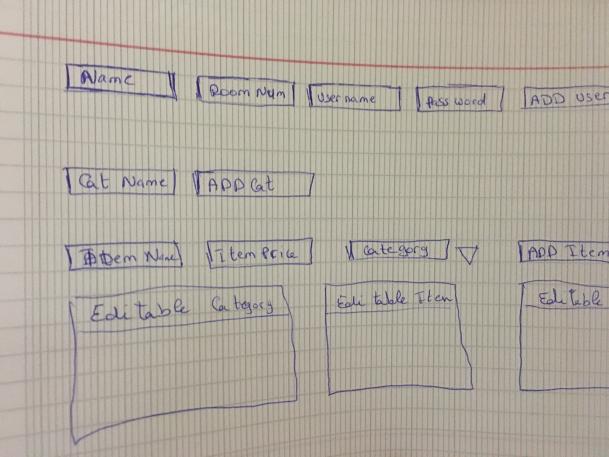 Name Room Num Username Password ADD User
Cat Name ADD Cat
Item Name Item Price Category ADD Item
Editable Category Editable Item Editable